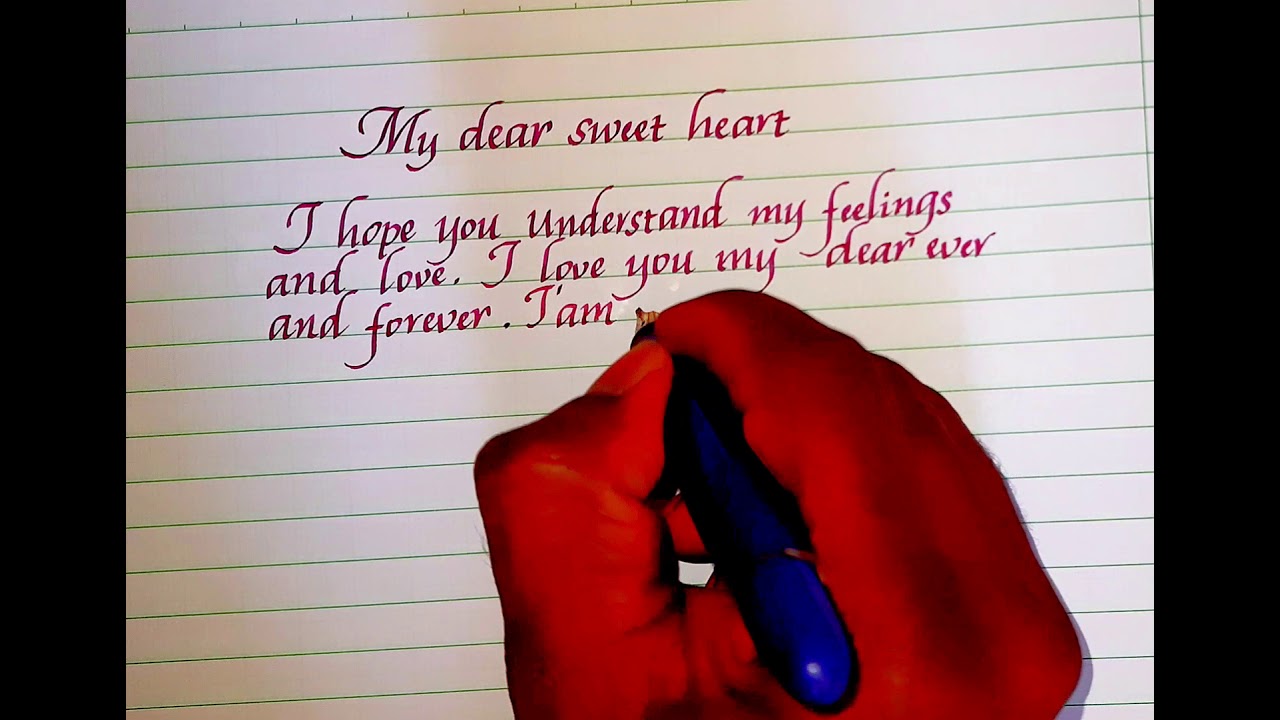 My dear sweet heart
I hope you understand my feelings
and love. I love you my dear ever
and forever. I'am